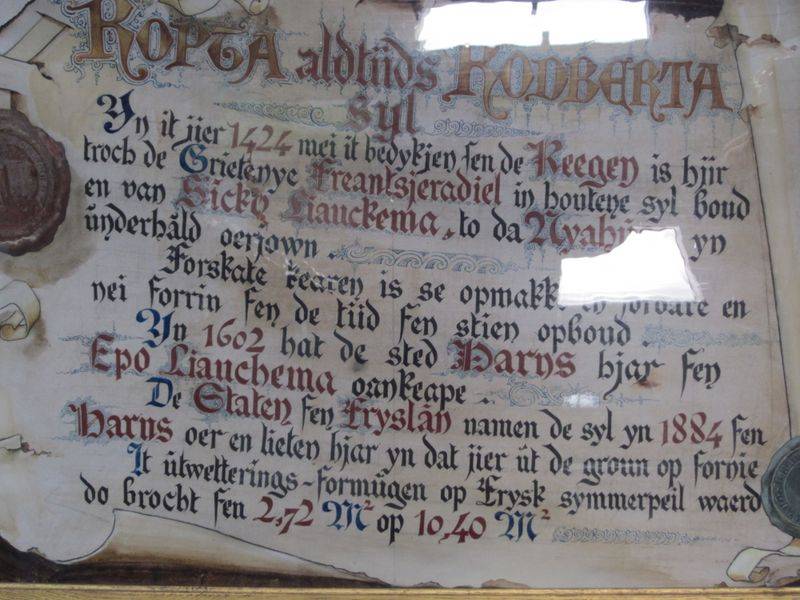 Ropta aldtiids Rodberta
syl
Yn it jier 1424 mei it bedykjen fen de Reegen is hjir
troch de Grietenye Freantsjeradiel in houtene syl boud
en van Sicky Liauckema, to da yn
ûnderhâld oerjown.
Forskate kearen is se opmakke en
nei forrin fen de tiid fen stien opboud.
Yn 1602 hat de sted Harns hjar fen
Epo Liauchema oankeape.
De Staten fen Fryslân namen de syl yn 1884 fen
Harns oer en lieten hjar yn dat jier út de groun op fornije
It útwetterings-formûgen op Frysk symmerpeil waerd
do brocht fen 2,72 M² op 10,40 M²